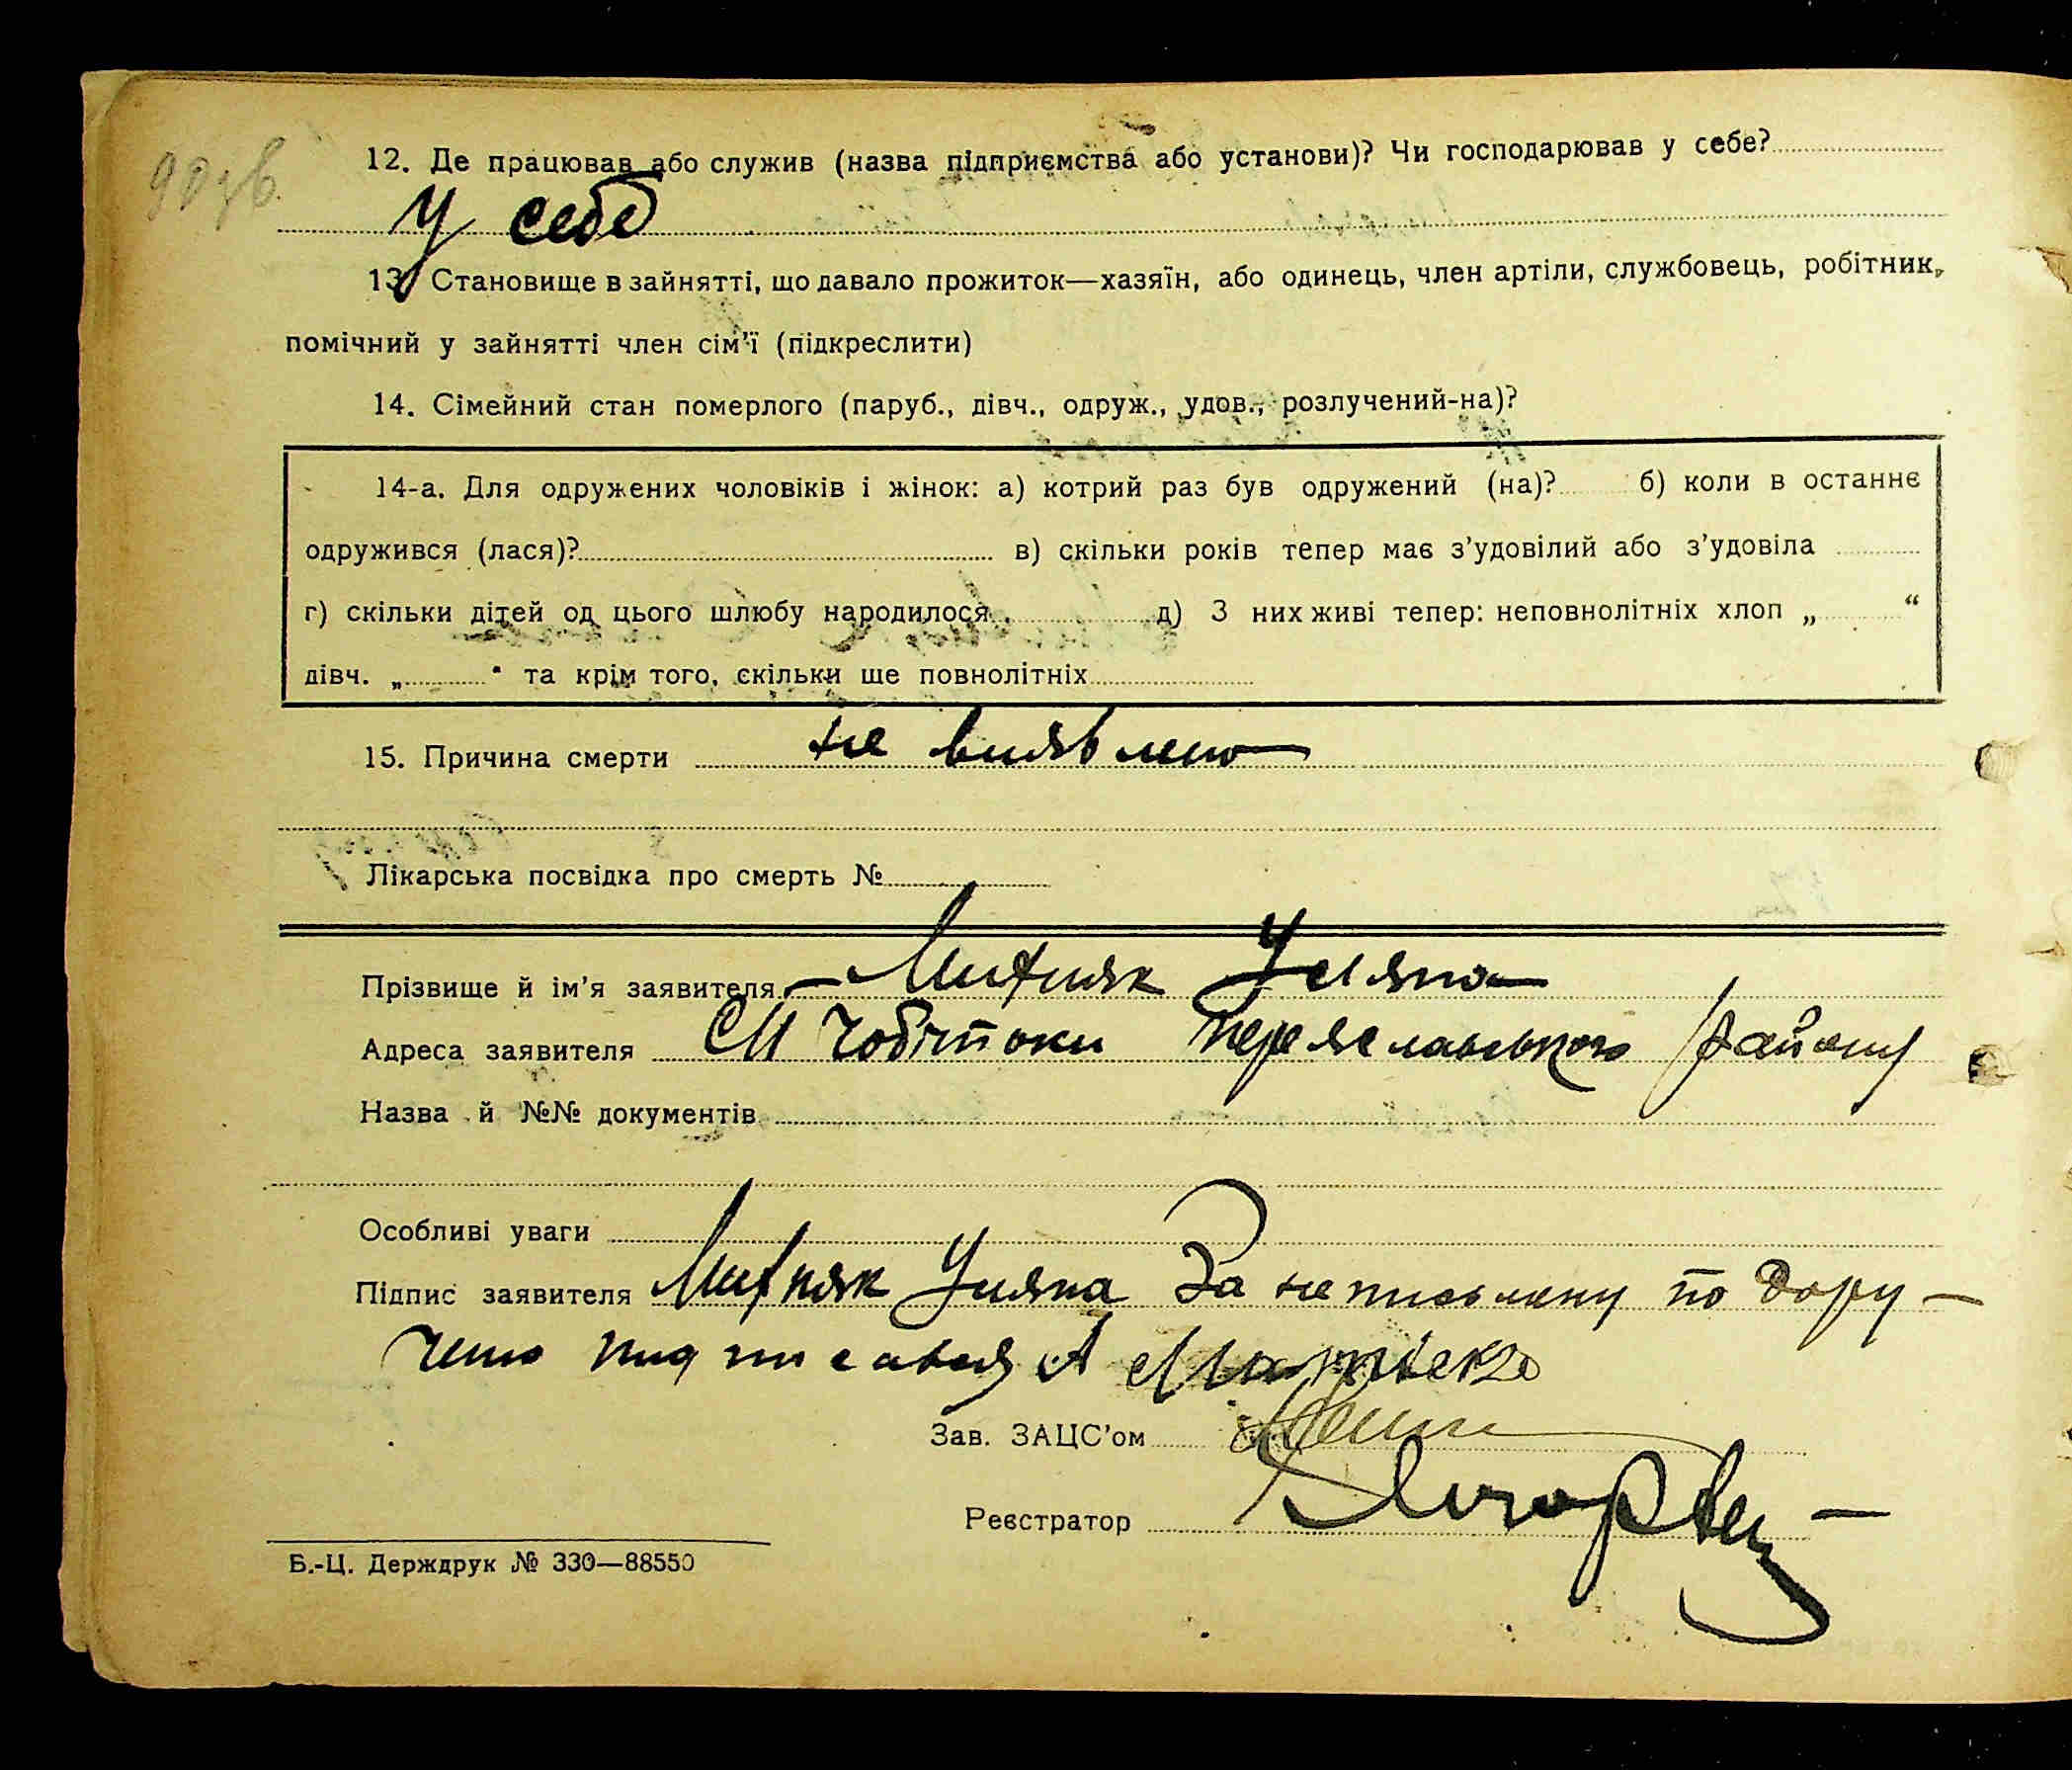 90 зв.
12. Де працював або служив (назва підприємства або установи)? Чи господарював у себе?
У себе
13. Становище в зайнятті, що давало прожиток—хазяїн, або одинець, член артіли, службовець, робітник,
помічний у зайнятті член сім'ї (підкреслити)
14. Сімейний стан померлого (паруб., дівч., одруж., удов., розлучений-на)?
14-а. Для одружених чоловіків і жінок: а) котрий раз був одружений (на)? б) коли в останнє
одружився (лася)? в) скільки років тепер має з'удовілий або з'удовіла
г) скільки дітей од цього шлюбу народилося д) З них живі тепер: неповнолітніх хлоп „ “
дівч. „ “ та крім того, скільки ще повнолітніх
15. Причина смерти не виявлено
Лікарська посвідка про смерть №
Прізвище й ім'я заявителя Михняк Уляна
Адреса заявителя См Чобітьки переяславського району
Назва й №№ документів
Особливі уваги
Підпис заявителя Михняк Уляна За неписьмену по дору-
чено підписався А
Зав. ЗАЦС'ом
Реєстратор
Б.-Ц. Держдрук № 330—88550